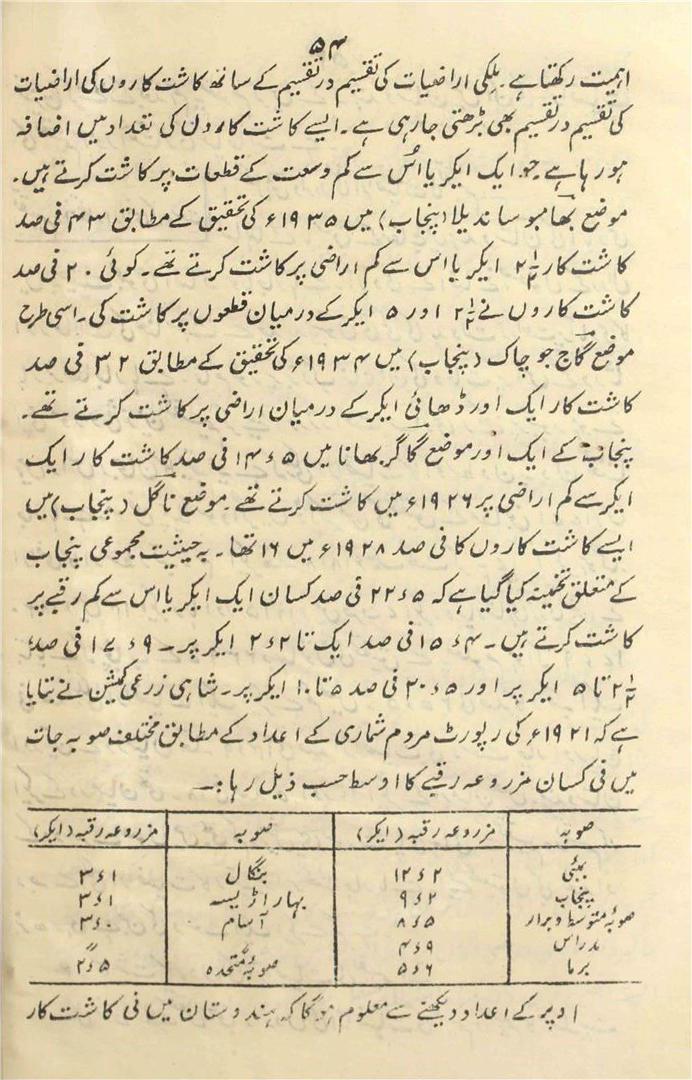 ۵۴
اہمیت رکھتا ہے۔ ملکی اراضیات کی تقسیم در تقسیم کے ساتھ کاشت کاروں کی اراضیات
کی تقسیم در تقسیم بھی بڑھتی جا رہی ہے۔ ایسے کاشت کاروں کی تعداد میں اضافہ
ہو رہا ہے جو ایک ایکر یا اُس سے کم وسعت کے قطعات پر کاشت کرتے ہیں۔
موضع بھامبو ساندیلا (پنجاب) میں ۱۹۳۵ء کی تحقیق کے مطابق ۴۳ فی صد
کاشت کار ۲½ ایکر یا اس سے کم اراضی پر کاشت کرتے تھے۔ کوئی ۲۰ فی صد
کاشت کاروں نے ۲½ اور ۵ ایکر کے درمیان قطعوں پر کاشت کی۔ اسی طرح
موضع گاج جو چاک (پنجاب) میں ۱۹۳۴ء کی تحقیق کے مطابق ۳۲ فی صد
کاشت کار ایک اور ڈھائی ایکر کے درمیان اراضی پر کاشت کرتے تھے۔
پنجاب کے ایک اور موضع گاگر بھانا میں ۱۴ء۵ فی صد کاشت کار ایک
ایکر سے کم اراضی پر ۱۹۲۶ء میں کاشت کرتے تھے۔ موضع ناگل (پنجاب) میں
ایسے کاشت کاروں کا فی صد ۱۹۲۸ء میں ۱۶ تھا۔ بہ حیثیت مجموعی پنجاب
کے متعلق تخمینہ کیا گیا ہے کہ ۲۲ء۵ فی صد کسان ایک ایکر یا اس سے کم رقبے پر
کاشت کرتے ہیں۔ ۱۵ء۴ فی صد ایک تا ۲ء۲ ایکر پر۔ ۱۷ء۹ فی صد
۲½ تا ۵ ایکر پر اور ۲۰ء۵ فی صد ۵ تا ۱۰ ایکر پر۔ شاہی زرعی کمیشن نے بتایا
ہے کہ ۱۹۲۱ء کی رپورٹ مردم شماری کے اعداد کے مطابق مختلف صوبہ جات
میں فی کسان مزروعہ رقبے کا اوسط حسب ذیل رہا:۔
صوبہ | مزروعہ رقبہ (ایکر) | صوبہ | مزروعہ رقبہ (ایکر)
بمبئی | ۱۲ء۲ | بنگال | ۳ء۱
پنجاب | ۹ء۲ | بہار اڑیسہ | ۳ء۱
صوبۂ متوسط و برار | ۸ء۵ | آسام | ۳ء۰
مدراس | ۴ء۹
برما | ۵ء۶ | صوبۂ متحدہ | ۲ء۵
اوپر کے اعداد دیکھنے سے معلوم ہو گا کہ ہندوستان میں فی کاشت کار